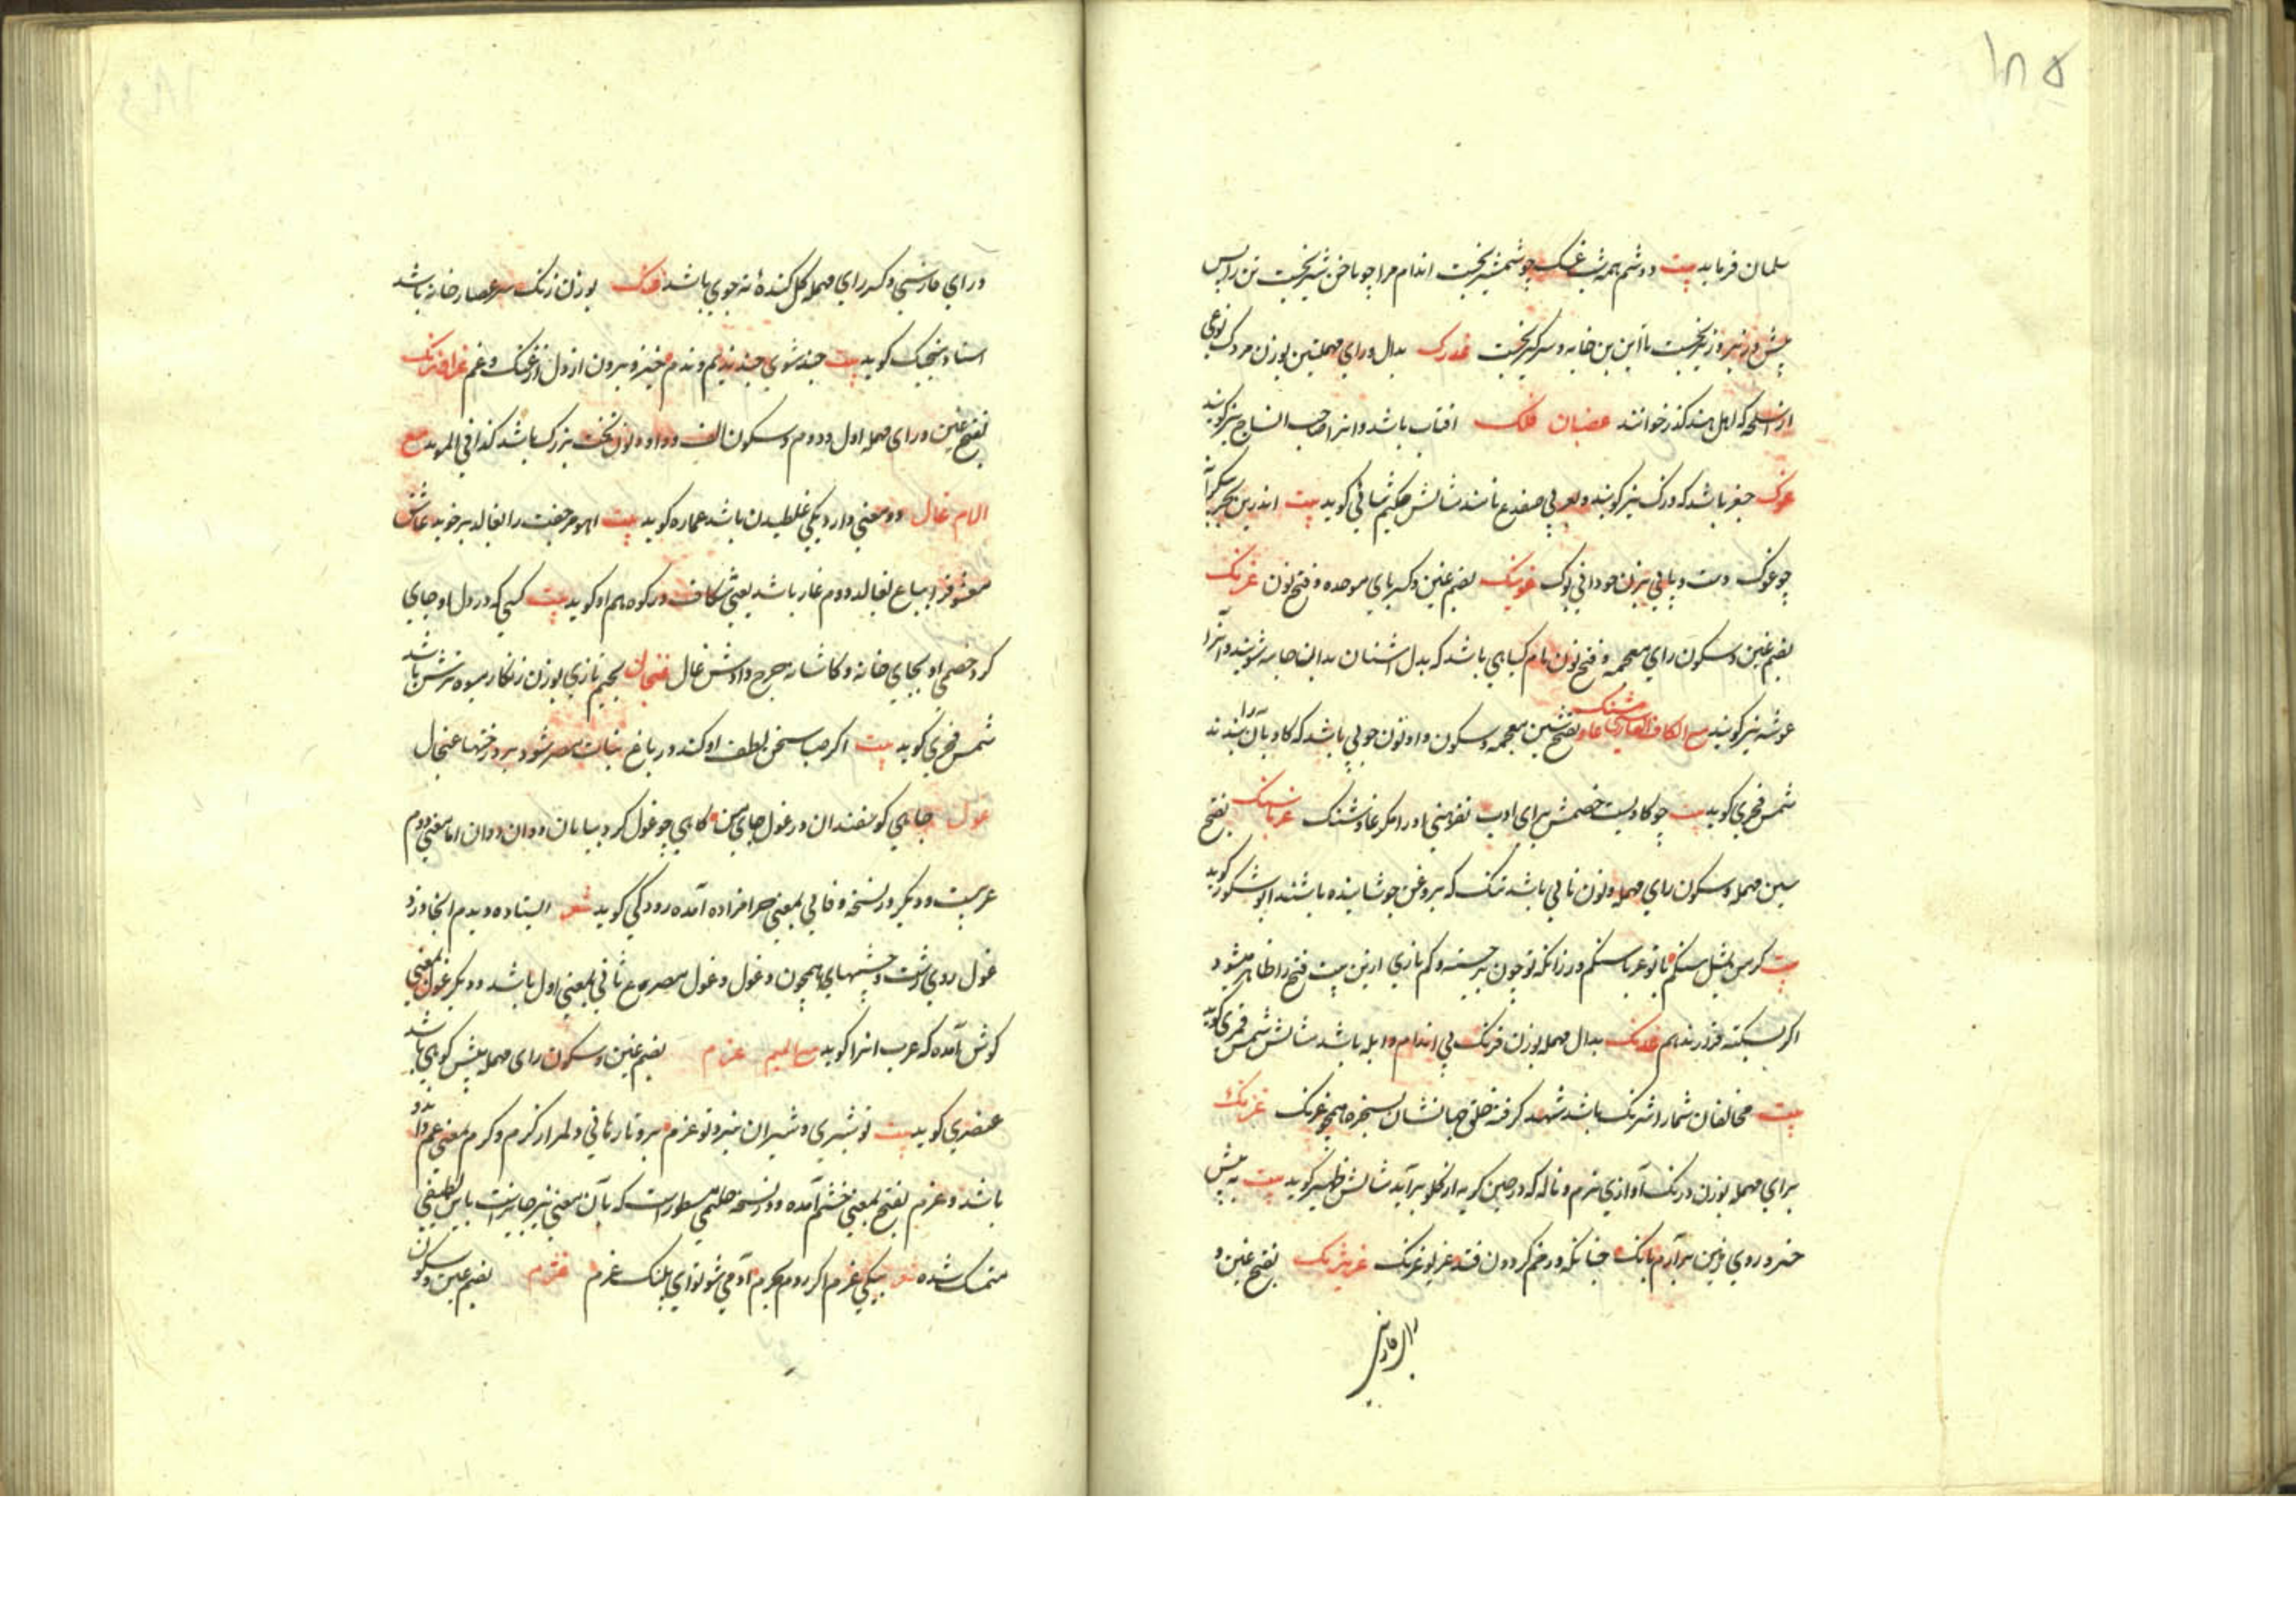 ۱۸۵
سلمان فرماید بیت دوشم همه شب غسک چو شمشیر بخیت اندام مرا چو ناخن شیر بخیت تن را پس
پیش و زیر و زبر بخیت تا این بن خایه و سر کیر بخیت غدرک بدال و رای مهملتین بوزن مردک نوعی
از اسلحه که اهل هند کذر خوانند غضبان فلک افتاب باشد و انرا صاحب التاج نیز کویند
غوک جغز باشد که وزک نیز کویند و بعربی ضفدع نامند مثالش حکیم ثنائی کوید بیت اندرین بحر بیکرانه
چو غوک دست و پائی بزن چه دانی بوک غوبنک بضم غین و کسر بای موحده و فتح نون غزنک
بضم غین و سکون زای معجمه و فتح نون نام کیاهی باشد که بدل اشنان بدان جامه شویند و آنرا
غوشه نیز کویند مع الکاف الفارسی غاوشنک بفتح شین معجمه و سکون واو و نون چوبی باشد که کاو بآن رانند
شمس فخری کوید بیت چو کاویست خصمش برای ادب نفرمبنی اورا مکر غاوشنک غرباسنک بفتح
سین مهمله و سکون رای مهمله و نون نانی باشد تنک که بروغن جوشانیده باشند ابو شکور کوید
بیت کر من بمثل سنکم با تو غرباسنکم ور زانکه تو چون بر خسته و کم نازی ازین بیت فتح را ظاهر میشود
اکر بسکته قرار ندهیم غدنک بدال مهمله بوزن فرنک بی اندام و ابله باشد مثالش شمس فخری کوید
بیت مخالفان شما را شرنک باشد شهد کرفته خلق جهانشان بسخره همچو غدنک غرنک
برای مهمله بوزن درنک آوازی نرم و ناله که در حین کریه از کلو برآید مثالش ظهیر کوید بیت به پیش
خسرو روی زمین برآرم بانک چنانکه در خم کردون فتد غریو غرنک غریژنک بفتح غین و
زای فارسی
و رای فارسی و کسر رای مهمله کل کنده ته جوی باشد غنک بوزن زنک سر عصارخانه باشد
استاد منجیک کوید بیت چند شوی چند ندیم و ندم خیز و برون از دل از غنک و غم غرافرنک
بفتح غین و رای مهمله اول و دوم و سکون الف و واو و نون تخت بزرک باشد کذا فی المؤید مع
اللام غال دو معنی دارد یکی غلطیدن باشد عماره کوید بیت اهو مر جفت را بغالد بر خوید عاشق
معشوق را بباغ بغالد دوم غار باشد یعنی شکاف در کوه هم او کوید بیت کسی که در دل او جای
کرد خصمی او بجای خانه و کاشانه چرخ دادش غال غنجال بجیم تازی بوزن زنکار میوه ترش باشد
شمس فخری کوید بیت اکر صبا سخن لطف او کند در باغ نبات مصر شود بر درختها غنجال
غول جاهی کوسفندان در غول جای من کاهی چو غول کرد بیابان دوان دوان اما معنی دوم
عربیست و دیکر در نسخه وفائی بمعنی حرامزاده آمده رودکی کوید شعر ایستاده دیدم آنجا دزد
غول روی زشت و چشمهای همچون دغول و غول مصرع ثانی بمعنی اول باشد و دیکر غول بمعنی
کوش آمده که عرب انرا کوید مع المیم غرم بضم غین و سکون رای مهمله میش کوهی باشد
عنصری کوید بیت تو شیری و شیران غیر و تو غرم برو تا رهانی دلم را ز کرم و کرم بمعنی غم و اندوه
باشد و غرم بفتح بمعنی خشم آمده و در نسخه حلیمی مسطور است که بآن معنی نیز جایزست باین لطیفی
متمسک شده شعر بیکی غرم اکر روم بحرم آدمی شو نوای پلنک غرم غژم بضم غین و سکون